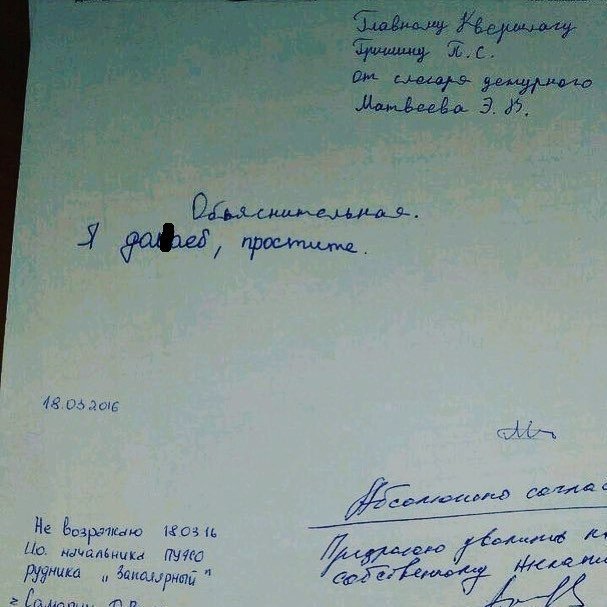 Главному Квершлагу
Гришину П.С.
от слесаря дежурного
Матвеева Э.В.
Объяснительная.
Я да аеб, простите.
18.03 2016
Не возражаю 18 03 16
Ио. начальника
рудника "Заполярный"
Абсолютно соглас
Предлагаю уволить по
собственному желани